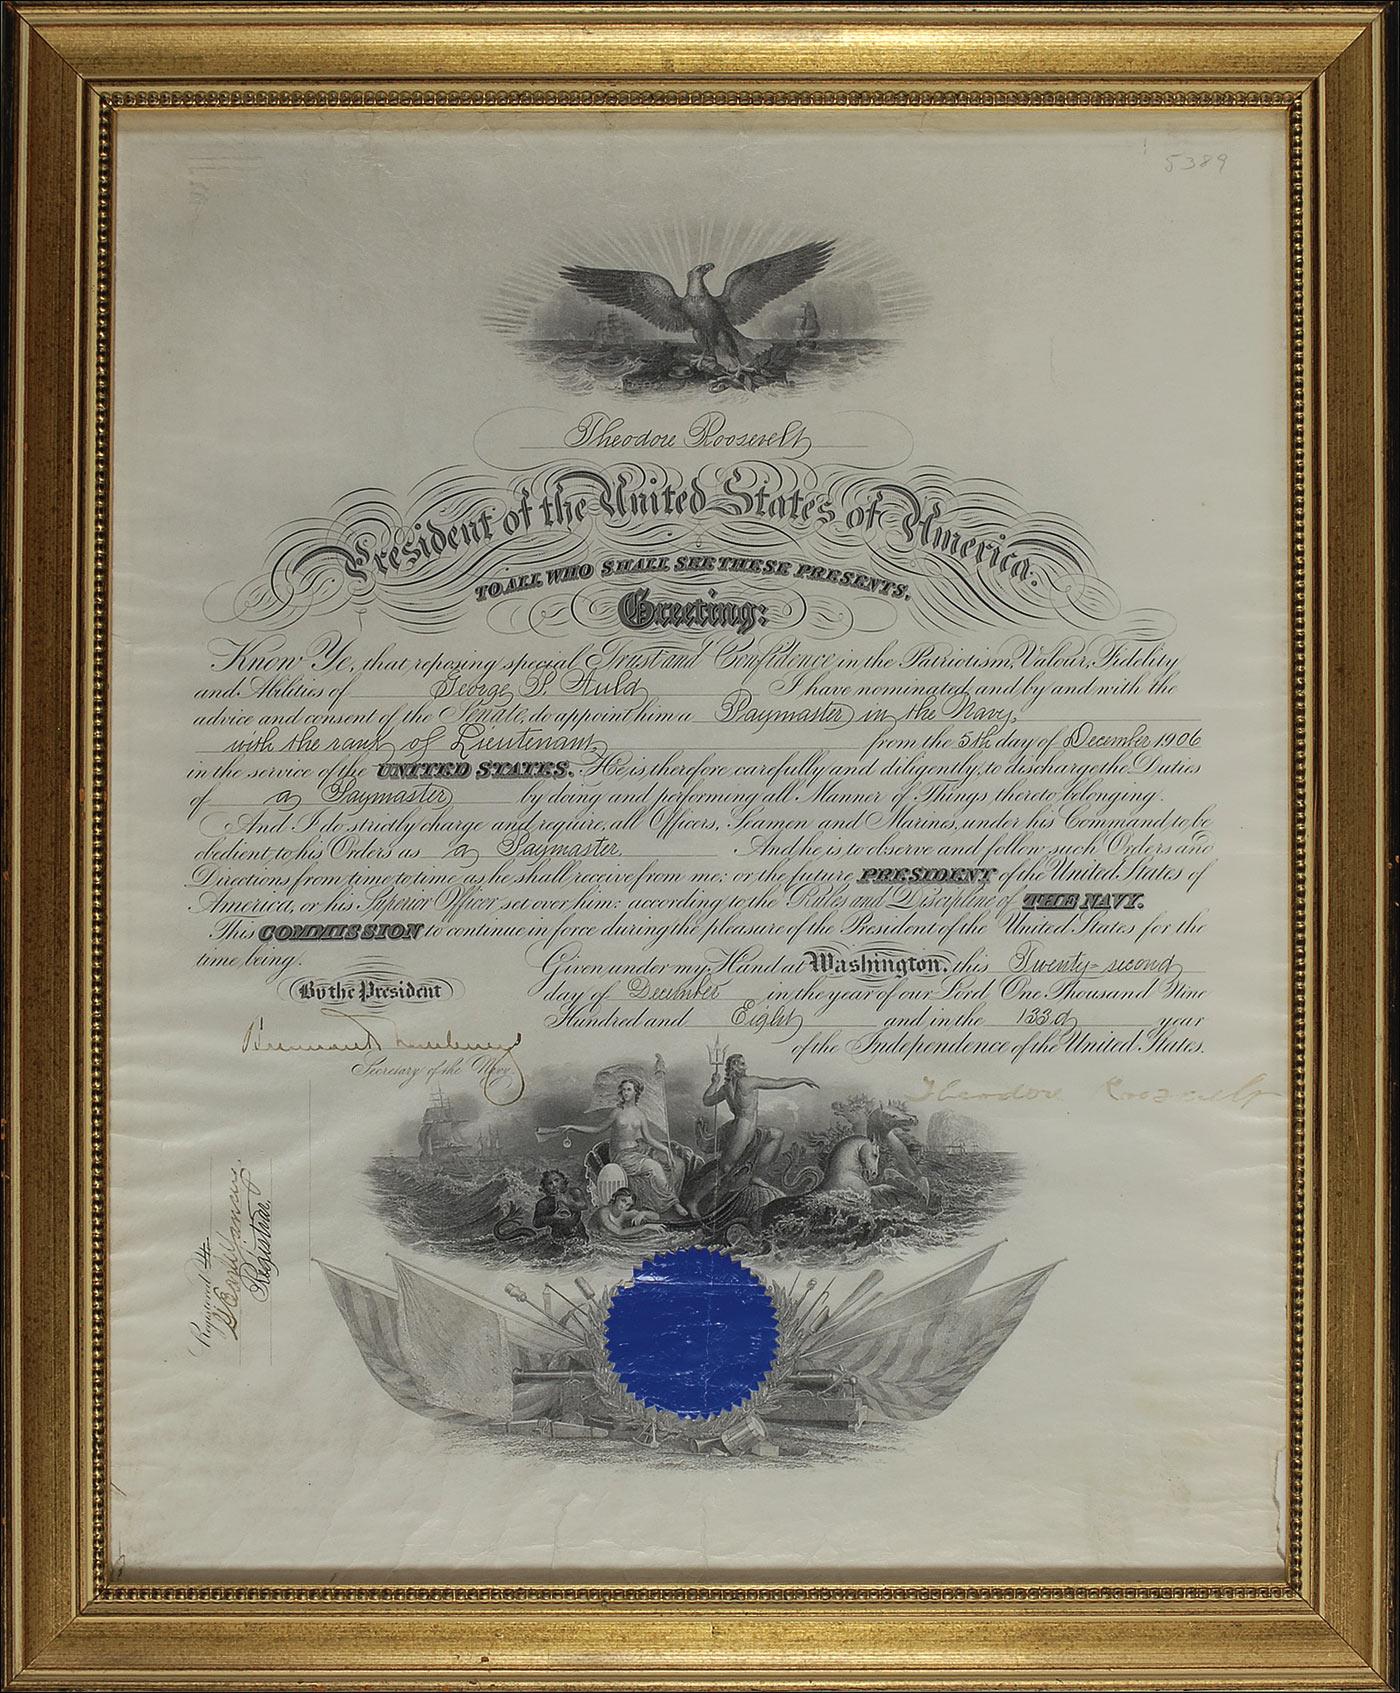 5389
Theodore Roosevelt
President of the United States of America.
TO ALL WHO SHALL SEE THESE PRESENTS,
Greeting:
Know Ye, that reposing special Trust and Confidence in the Patriotism, Valour, Fidelity
and Abilities of George P. Auld I have nominated and by and with the
advice and consent of the Senate, do appoint him a Paymaster in the Navy,
with the rank of Lieutenant, from the 5th day of December 1906
in the service of the UNITED STATES. He is, therefore carefully and diligently, to discharge the Duties
of a Paymaster by doing and performing all Manner of Things thereto belonging.
And I do strictly charge and require all Officers, Seamen and Marines, under his Command to be
obedient to his Orders as a Paymaster. And he is to observe and follow such Orders and
Directions from time to time as he shall receive from me: or the future PRESIDENT of the United States of
America, or his Superior Officer set over him: according to the Rules and Discipline of THE NAVY.
This COMMISSION to continue in force during the pleasure of the President of the United States for the
time being.
Given under my Hand at Washington, this Twenty-second
By the President
day of December in the year of our Lord One Thousand Nine
Hundred and Eight and in the 133d year
of the Independence of the United States.
Secretary of the Navy
Theodore Roosevelt
Registered
Registrar.